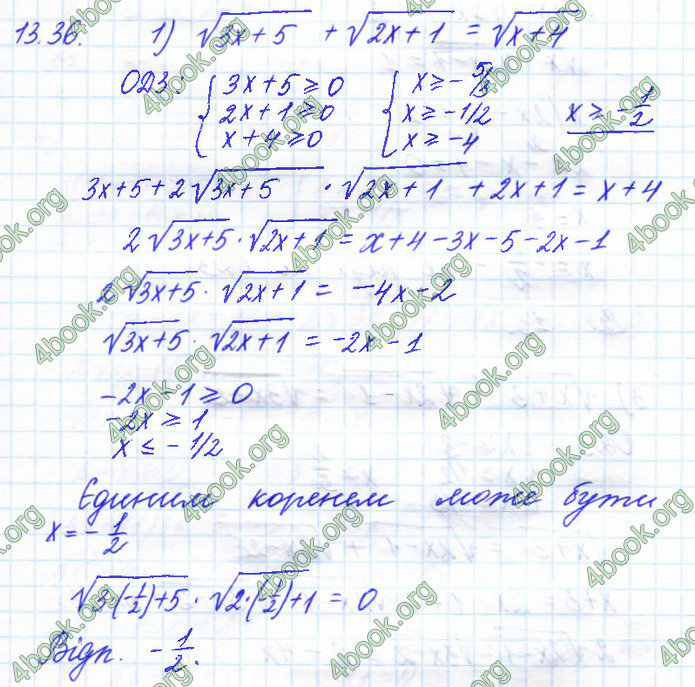 13.36. 1) √(3x+5) + √(2x+1) = √(x+4)
ОДЗ: { 3x+5 ≥ 0 { x ≥ -5/3
2x+1 ≥ 0 x ≥ -1/2 x ≥ -1/2
x+4 ≥ 0 x ≥ -4
3x+5+2√(3x+5) · √(2x+1) + 2x+1 = x+4
2√(3x+5) · √(2x+1) = x+4-3x-5-2x-1
2√(3x+5) · √(2x+1) = -4x-2
√(3x+5) · √(2x+1) = -2x-1
-2x-1 ≥ 0
-2x ≥ 1
x ≤ -1/2
Єдиним коренем може бути
x = -1/2
√(3(-1/2)+5) · √(2·(-1/2)+1) = 0
Відп. -1/2.
4book.org